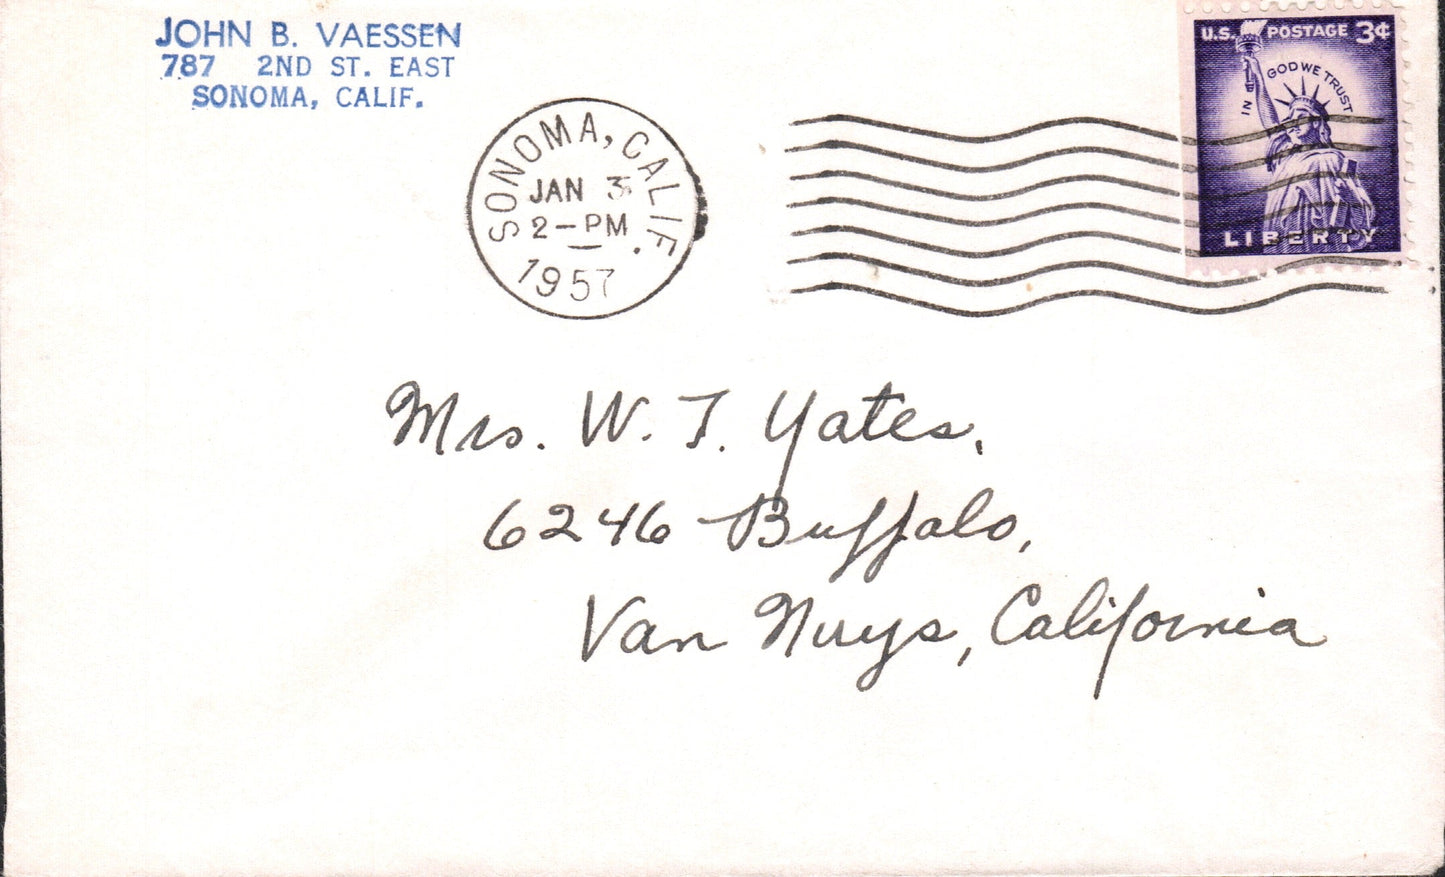 JOHN B. VAESSEN
787 2ND ST. EAST
SONOMA, CALIF.
SONOMA, CALIF.
JAN 3
2-PM
1957
U.S. POSTAGE 3¢
IN GOD WE TRUST
LIBERTY
Mrs. W. T. Yates,
6246 Buffalo,
Van Nuys, California